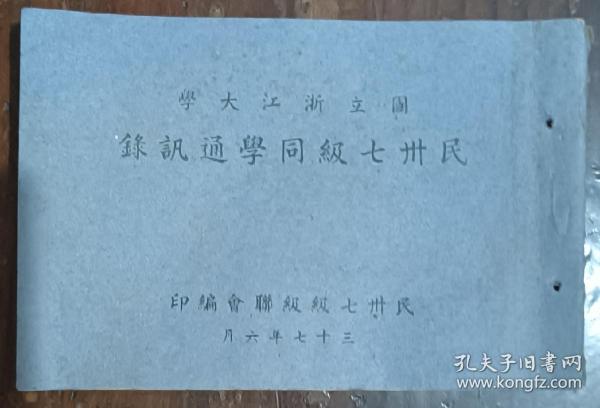 國立浙江大學
民卅七級同學通訊錄
民卅七級級聯會編印
三十七年六月
孔夫子旧书网
www.kongfz.com